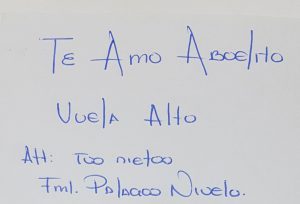 Te Amo Abuelito
Vuela Alto
Att: Tus nietos
Fml. Palacios Nivelo.